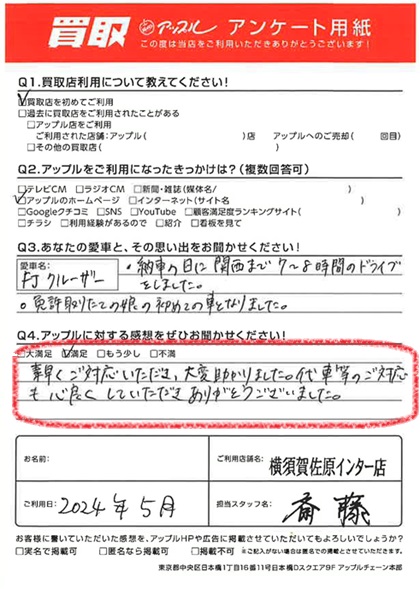 買取 アップル アンケート用紙
この度は当店をご利用いただきありがとうございます!
Q1.買取店利用について教えてください!
☑買取店を初めてご利用
□過去に買取店をご利用されたことがある
□アップル店をご利用
ご利用された店舗:アップル( )店 アップルへのご売却( 回目)
□その他の買取店( )
Q2.アップルをご利用になったきっかけは?(複数回答可)
□テレビCM □ラジオCM □新聞・雑誌(媒体名/ )
☑アップルのホームページ □インターネット(サイト名 )
□Googleクチコミ □SNS □YouTube □顧客満足度ランキングサイト( )
□チラシ □利用経験があるので □紹介 □看板を見て
Q3.あなたの愛車と、その思い出をお聞かせください!
愛車名:
FJクルーザー
・納車の日に関西まで7〜8時間のドライブ
をしました。
・免許取りたての娘の初めての車となりました。
Q4.アップルに対する感想をぜひお聞かせください!
□大満足 ☑満足 □もう少し □不満
素早くご対応いただき、大変助かりました。代車等のご対応
も心良くしていただきありがとうございました。
お名前:
ご利用店舗名:
横須賀佐原インター店
ご利用日:
2024年5月
担当スタッフ名:
斎藤
お客様に書いていただいた感想を、アップルHPや広告に掲載させていただいてもよろしいでしょうか?
□実名で掲載可 □匿名なら掲載可 □掲載不可 ※ご記入がない場合は匿名での掲載とさせていただきます。
東京都中央区日本橋1丁目16番11号日本橋Dスクエア9F アップルチェーン本部